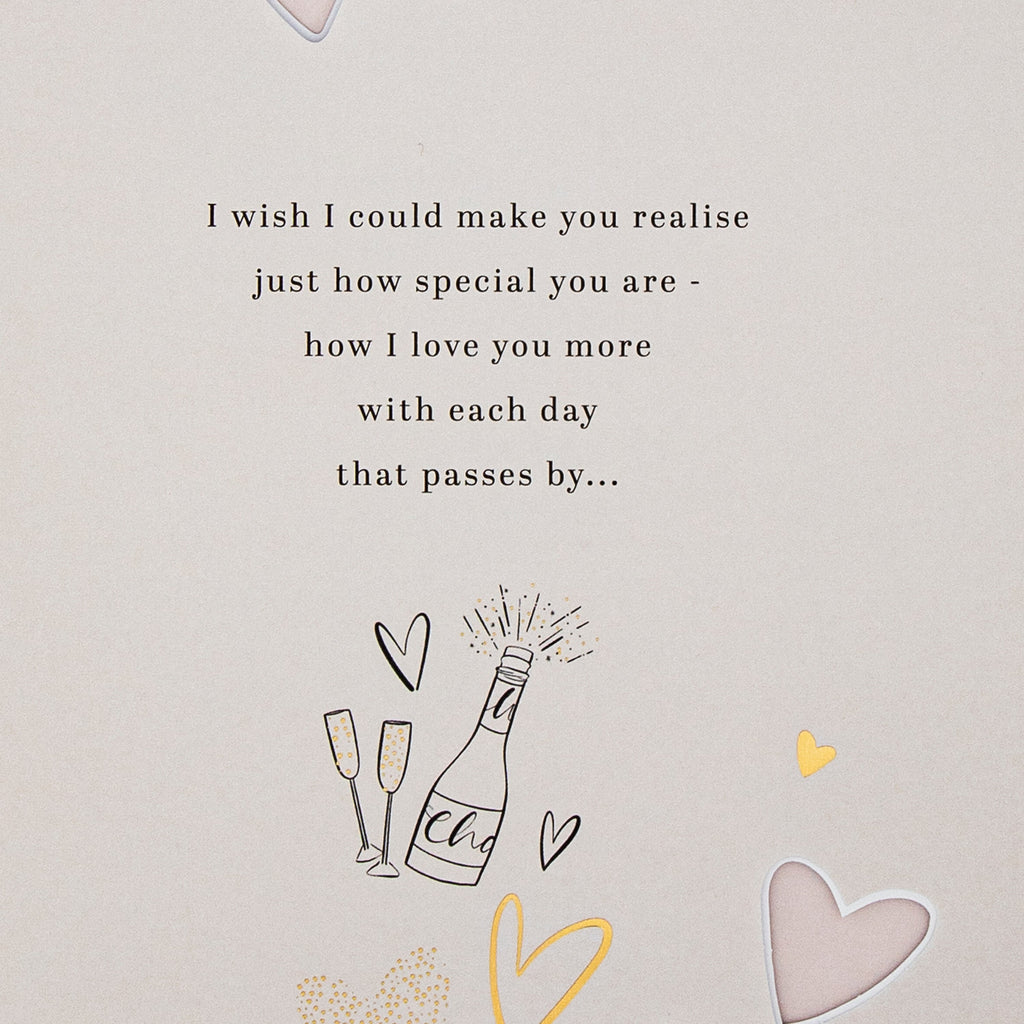 I wish I could make you realise
just how special you are -
how I love you more
with each day
that passes by...